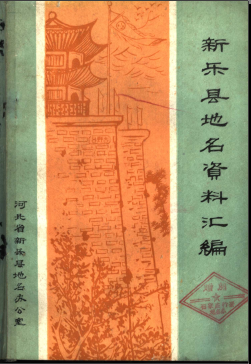 新乐县地名資料汇編
河北省新乐县地名办公室